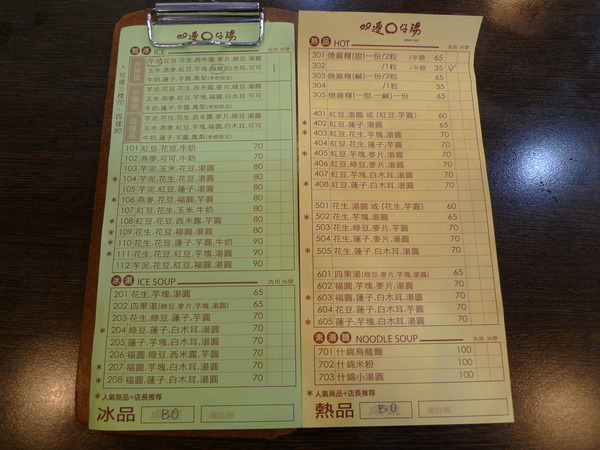 双連○仔湯
剉冰 ICE
內用 外帶
任選一樣70、四樣80
芋泥.花豆.花生.西米露.麥片.綠豆.湯圓
玉米.燕麥.紅豆.芋塊.福圓.白木耳.可可
牛奶.蓮子.芋圓.鳳梨(季節限定)
芋泥.花豆.花生.西米露.麥片.綠豆.湯圓
玉米.燕麥.紅豆.芋塊.福圓.白木耳.可可
牛奶.蓮子.芋圓.鳳梨(季節限定)
芋泥.花豆.花生.西米露.麥片.綠豆.湯圓
玉米.燕麥.紅豆.芋塊.福圓.白木耳.可可
牛奶.蓮子.芋圓.鳳梨(季節限定)
101 紅豆.花豆.牛奶 70
102 燕麥.可可.牛奶 70
103 芋泥.花豆.花豆.湯圓 80
* 104 芋泥.花豆.花生.湯圓 80
105 芋泥.紅豆.蓮子.湯圓 80
* 106 燕麥.花豆.福圓.芋圓 80
107 紅豆.花生.玉米.牛奶 80
* 108 紅豆.花豆.西米露.芋圓 80
* 109 花生.花豆.福圓.湯圓 80
* 110 花生.花豆.蓮子.芋圓.牛奶 90
* 111 花生.花豆.紅豆.芋塊.湯圓 90
112 芋泥.花豆.紅豆.福圓.湯圓 90
冰湯 ICE SOUP
內用 外帶
201 花生.芋塊.湯圓 65
202 四果湯(綠豆.麥片.芋塊.湯圓) 65
203 花生.綠豆.蓮子.芋圓 70
* 204 綠豆.蓮子.白木耳.湯圓 70
205 蓮子.芋塊.白木耳.湯圓 70
206 福圓.綠豆.西米露.芋圓 70
* 207 福圓.芋塊.白木耳.湯圓 70
* 208 福圓.蓮子.白木耳.湯圓 70
*人氣商品+店長推荐
冰品
BO
備註欄
双連○仔湯
熱品 HOT
內用 外帶
301 燒麻糬(甜)一份/2粒 /半糖 65
302 /1粒 /半糖 35 ✓
303 燒麻糬(鹹)一份/2粒 65
304 /1粒 35
305 燒麻糬(一甜.一鹹)一份 65
401 紅豆.湯圓 或 (紅豆.芋圓) 60
* 402 紅豆.蓮子.湯圓 65
* 403 紅豆.花生.芋塊.湯圓 70
404 紅豆.花生.蓮子.芋圓 70
* 405 紅豆.芋塊.麥片.湯圓 70
406 紅豆.綠豆.麥片.湯圓 70
407 紅豆.芋塊.白木耳.湯圓 70
* 408 紅豆.蓮子.白木耳.湯圓 70
501 花生.湯圓 或 (花生.芋圓) 60
* 502 花生.芋塊.湯圓 65
503 花生.綠豆.麥片.湯圓 70
504 花生.蓮子.麥片.湯圓 70
* 505 花生.蓮子.白木耳.湯圓 70
601 四果湯(綠豆.麥片.芋塊.湯圓) 65
602 福圓.芋塊.麥片.湯圓 70
* 603 福圓.蓮子.白木耳.湯圓 70
604 花豆.福圓.蓮子.芋圓 70
* 605 花豆.芋塊.白木耳.湯圓 70
素湯麵 NOODLE SOUP
內用 外帶
701 什錦烏龍麵 100
702 什錦米粉 100
703 什錦小湯圓 100
*人氣商品+店長推荐
熱品
BO
備註欄